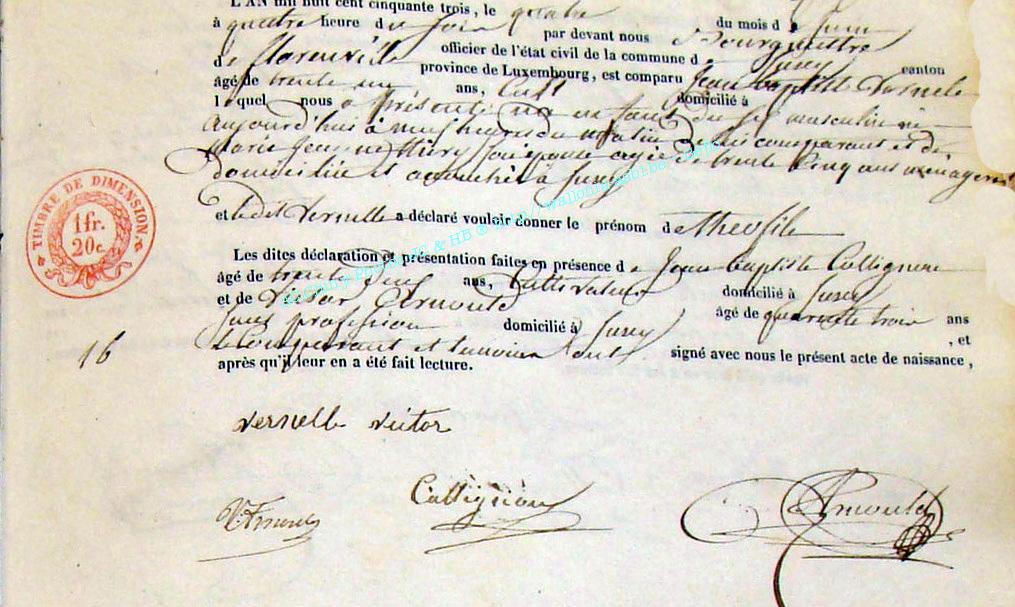 L'AN mil huit cent cinquante trois, le quatre du mois de Juin
à quatre heure du soir par devant nous Bourguettre
officier de l'état civil de la commune de Jusey canton
de province de Luxembourg, est comparu Jean baptiste Vernele
âgé de trente un ans, Cult domicilié à
lequel nous a présenté un enfant du sexe masculin né
aujourd'hui à neuf heures du matin de lui comparant et de
Marie Jeanne Thiry son épouse agée de trente Cinq ans menagere
domiciliée et accouchée à Jusey
et le dit Vernelle a déclaré vouloir donner le prénom de theofile
Les dites déclaration et présentation faites en présence de Jean baptiste Collignon
âgé de trente ans, Cultivateur domicilié à Jusey
et de Victor Arnould âgé de quarante trois ans
sans profession domicilié à Jusey , et
le comparant et temoins ont signé avec nous le présent acte de naissance,
après qu'il leur en a été fait lecture.
TIMBRE DE DIMENSION
1fr.
20c.
16
Vernelle Victor
Collignon
VArnould
Arnould